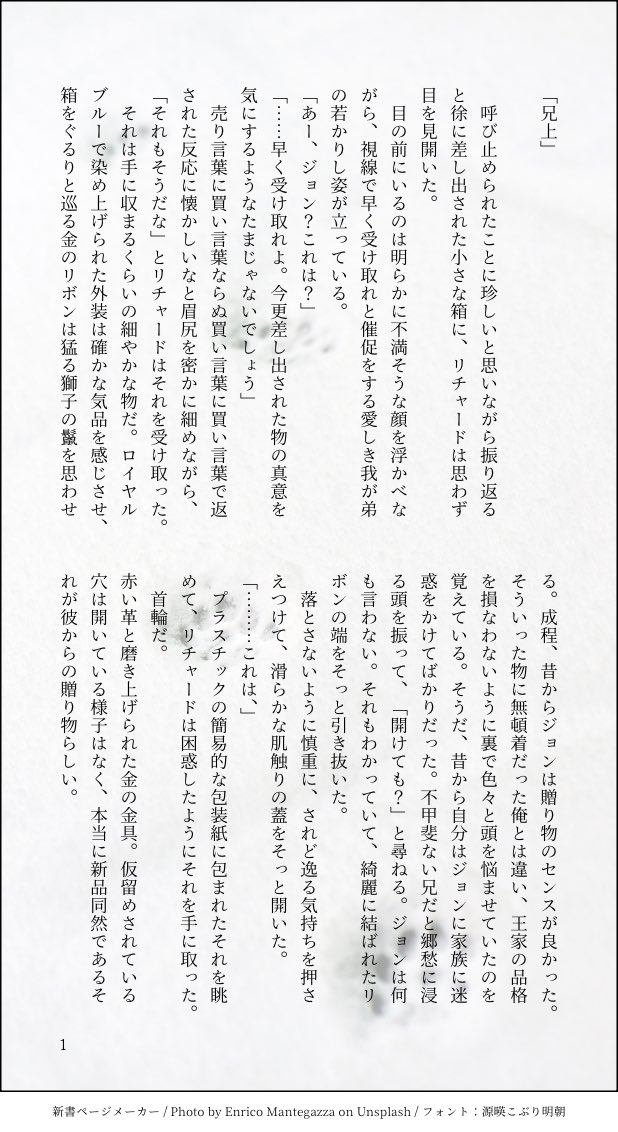 「兄上」
呼び止められたことに珍しいと思いながら振り返る
と徐に差し出された小さな箱に、リチャードは思わず
目を見開いた。
目の前にいるのは明らかに不満そうな顔を浮かべな
がら、視線で早く受け取れと催促をする愛しき我が弟
の若かりし姿が立っている。
「あー、ジョン？これは？」
「……早く受け取れよ。今更差し出された物の真意を
気にするようなたまじゃないでしょう」
売り言葉に買い言葉ならぬ買い言葉に買い言葉で返
された反応に懐かしいなと眉尻を密かに細めながら、
「それもそうだな」とリチャードはそれを受け取った。
それは手に収まるくらいの細やかな物だ。ロイヤル
ブルーで染め上げられた外装は確かな気品を感じさせ、
箱をぐるりと巡る金のリボンは猛る獅子の鬣を思わせ
る。成程、昔からジョンは贈り物のセンスが良かった。
そういった物に無頓着だった俺とは違い、王家の品格
を損なわないように裏で色々と頭を悩ませていたのを
覚えている。そうだ、昔から自分はジョンに家族に迷
惑をかけてばかりだった。不甲斐ない兄だと郷愁に浸
る頭を振って、「開けても？」と尋ねる。ジョンは何
も言わない。それもわかっていて、綺麗に結ばれたリ
ボンの端をそっと引き抜いた。
落とさないように慎重に、されど逸る気持ちを押さ
えつけて、滑らかな肌触りの蓋をそっと開いた。
「………これは、」
プラスチックの簡易的な包装紙に包まれたそれを眺
めて、リチャードは困惑したようにそれを手に取った。
首輪だ。
赤い革と磨き上げられた金の金具。仮留めされている
穴は開いている様子はなく、本当に新品同然であるそ
れが彼からの贈り物らしい。
1
新書ページメーカー / Photo by Enrico Mantegazza on Unsplash / フォント：源暎こぶり明朝